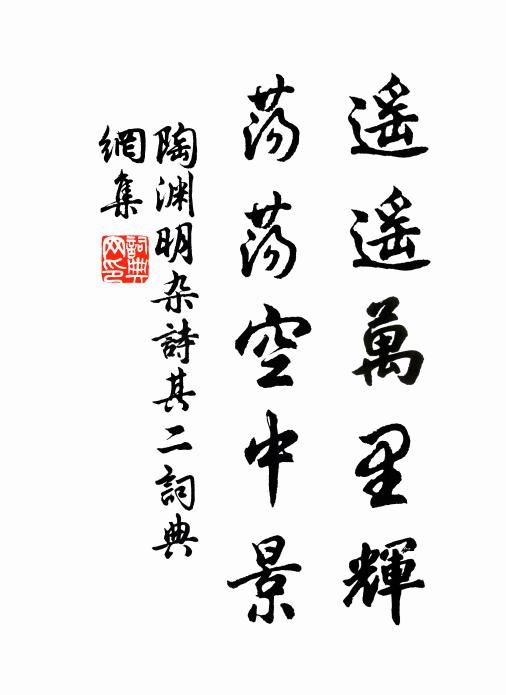 遥遥萬里輝
荡荡空中景
陶渊明杂詩其二詞典
網集
詞典网印